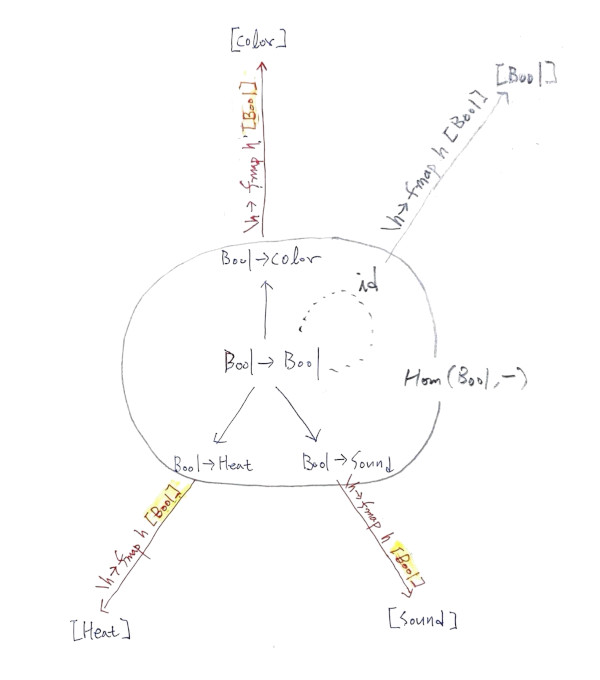 [Color]
[Bool]
\h→ fmap h' [Bool]
\h→ fmap h [Bool]
Bool→Color
id
Bool → Bool
Hom(Bool,-)
Bool→Heat
Bool→Sound
\h→ fmap h [Bool]
\h→ fmap h [Bool]
[Heat]
[Sound]